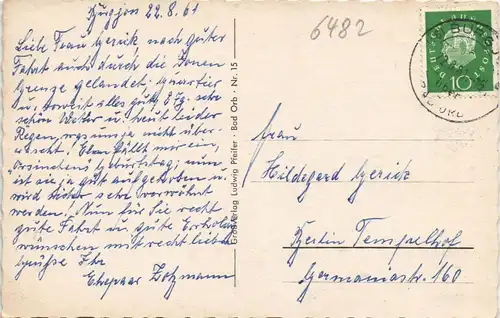 22.8.61
Liebe Frau Gerick nach guter
Fahrt auch durch die Zonen
Grenze gelandet. Quartier
u. soweit alles gut. z. Zg. sehr
schön Wetter u. heut leider
Regen, was uns ja nicht über-
rascht. Eben fällt mir ein,
Geburtstag; nun
ist sie ja gut aufgehoben u.
wird sicher sehr verwöhnt
werden. Nun für Sie recht
gute Fahrt u. gute Erholung
wünschen mit recht lieben
Grüßen Ihr
Ehepaar Zotzmann
Ludwig Pfeifer · Bad Orb · Nr. 15
6482
10
BAD ORB
Frau
Hildegard Gerick
Berlin Tempelhof
Germaniastr. 160